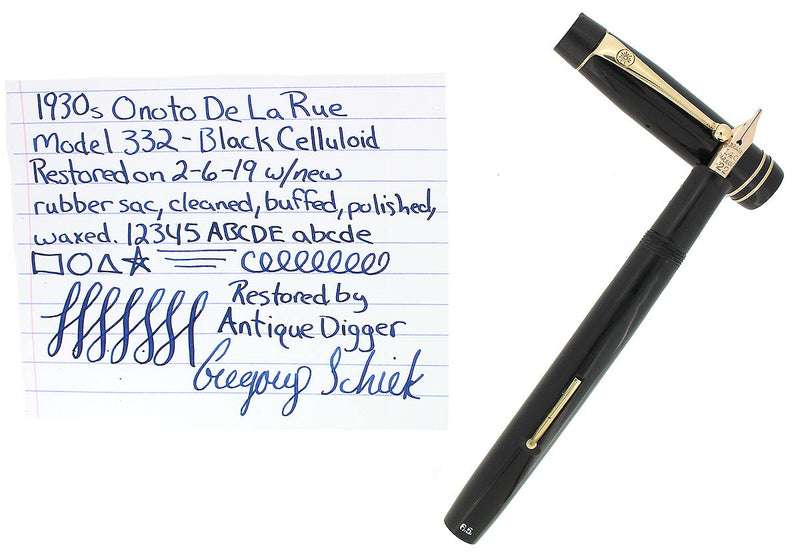 1930s Onoto De La Rue
Model 332 - Black Celluloid
Restored on 2-6-19 w/new
rubber sac, cleaned, buffed, polished,
waxed. 12345 ABCDE abcde
Restored by
Antique Digger
Gregory Schiek
6.5.